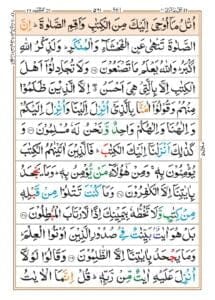 اُتْلُ مَاۤ اُوْحِیَ اِلَیْكَ مِنَ الْكِتٰبِ وَاَقِمِ الصَّلٰوةَ ؕ اِنَّ
الصَّلٰوةَ تَنْهٰی عَنِ الْفَحْشَآءِ وَالْمُنْكَرِ ؕ وَلَذِكْرُ اللّٰهِ
اَكْبَرُ ؕ وَاللّٰهُ یَعْلَمُ مَا تَصْنَعُوْنَ ۝ وَلَا تُجَادِلُوْۤا اَهْلَ
الْكِتٰبِ اِلَّا بِالَّتِیْ هِیَ اَحْسَنُ ۖ اِلَّا الَّذِیْنَ ظَلَمُوْا
مِنْهُمْ وَقُوْلُوْۤا اٰمَنَّا بِالَّذِیْۤ اُنْزِلَ اِلَیْنَا وَاُنْزِلَ اِلَیْكُمْ
وَاِلٰهُنَا وَاِلٰهُكُمْ وَاحِدٌ وَّنَحْنُ لَهٗ مُسْلِمُوْنَ ۝ وَ
كَذٰلِكَ اَنْزَلْنَاۤ اِلَیْكَ الْكِتٰبَ ؕ فَالَّذِیْنَ اٰتَیْنٰهُمُ الْكِتٰبَ
یُؤْمِنُوْنَ بِهٖ ۚ وَمِنْ هٰۤؤُلَآءِ مَنْ یُّؤْمِنُ بِهٖ ؕ وَمَا یَجْحَدُ
بِاٰیٰتِنَاۤ اِلَّا الْكٰفِرُوْنَ ۝ وَمَا كُنْتَ تَتْلُوْا مِنْ قَبْلِهٖ
مِنْ كِتٰبٍ وَّلَا تَخُطُّهٗ بِیَمِیْنِكَ اِذًا لَّارْتَابَ الْمُبْطِلُوْنَ ۝
بَلْ هُوَ اٰیٰتٌۢ بَیِّنٰتٌ فِیْ صُدُوْرِ الَّذِیْنَ اُوْتُوا الْعِلْمَ ؕ
وَمَا یَجْحَدُ بِاٰیٰتِنَاۤ اِلَّا الظّٰلِمُوْنَ ۝ وَقَالُوْا لَوْلَاۤ
اُنْزِلَ عَلَیْهِ اٰیٰتٌ مِّنْ رَّبِّهٖ ؕ قُلْ اِنَّمَا الْاٰیٰتُ